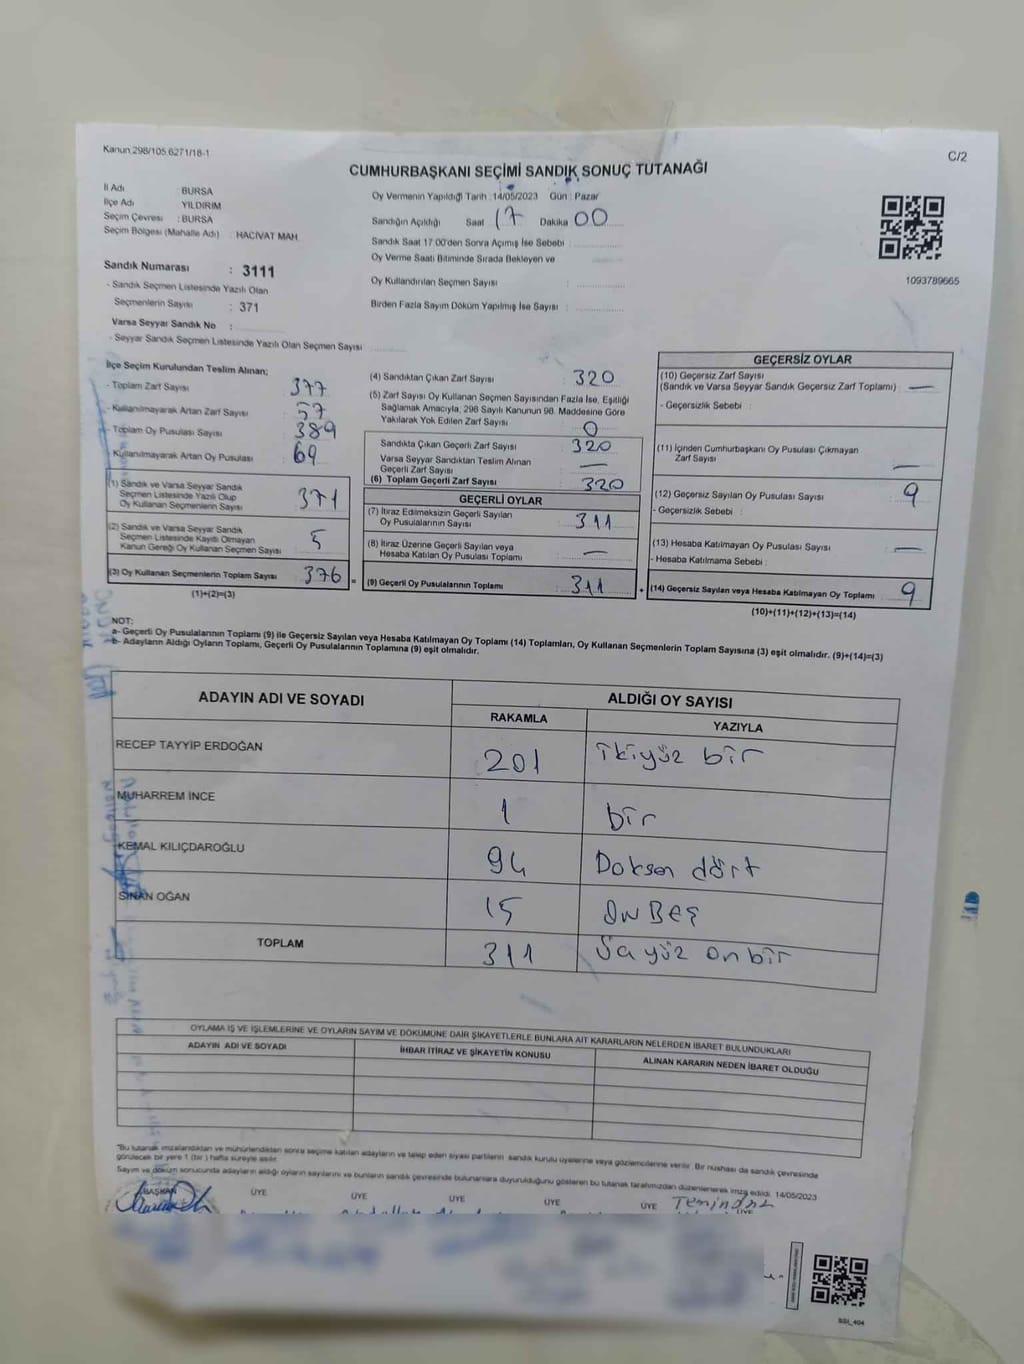 Kanun 298/105.6271/18-1
C/2
CUMHURBAŞKANI SEÇİMİ SANDIK SONUÇ TUTANAĞI
İl Adı : BURSA
İlçe Adı : YILDIRIM
Seçim Çevresi : BURSA
Seçim Bölgesi (Mahalle Adı) : HACİVAT MAH.
Sandık Numarası : 3111
- Sandık Seçmen Listesinde Yazılı Olan
Seçmenlerin Sayısı : 371
Varsa Seyyar Sandık No :
- Seyyar Sandık Seçmen Listesinde Yazılı Olan Seçmen Sayısı
Oy Vermenin Yapıldığı Tarih : 14/05/2023 Gün : Pazar
Sandığın Açıldığı Saat 17 Dakika 00
Sandık Saat 17:00'den Sonra Açımış İse Sebebi :
Oy Verme Saati Bitiminde Sırada Bekleyen ve
Oy Kullandırılan Seçmen Sayısı :
Birden Fazla Sayım Döküm Yapılmış İse Sayısı :
1093789665
İlçe Seçim Kurulundan Teslim Alınan;
- Toplam Zarf Sayısı 377
- Kullanılmayarak Artan Zarf Sayısı 57
- Toplam Oy Pusulası Sayısı 389
- Kullanılmayarak Artan Oy Pusulası 69
(1) Sandık ve Varsa Seyyar Sandık
Seçmen Listesinde Yazılı Olup
Oy Kullanan Seçmenlerin Sayısı 371
(2) Sandık ve Varsa Seyyar Sandık
Seçmen Listesinde Kayıtlı Olmayan
Kanun Gereği Oy Kullanan Seçmen Sayısı 5
(3) Oy Kullanan Seçmenlerin Toplam Sayısı 376 =
(1)+(2)=(3)
(4) Sandıktan Çıkan Zarf Sayısı : 320
(5) Zarf Sayısı Oy Kullanan Seçmen Sayısından Fazla İse, Eşitliği
Sağlamak Amacıyla, 298 Sayılı Kanunun 98. Maddesine Göre
Yakılarak Yok Edilen Zarf Sayısı 0
Sandıkta Çıkan Geçerli Zarf Sayısı 320
Varsa Seyyar Sandıktan Teslim Alınan
Geçerli Zarf Sayısı —
(6) Toplam Geçerli Zarf Sayısı 320
GEÇERLİ OYLAR
(7) İtiraz Edilmeksizin Geçerli Sayılan
Oy Pusulalarının Sayısı 311
(8) İtiraz Üzerine Geçerli Sayılan veya
Hesaba Katılan Oy Pusulası Toplamı —
(9) Geçerli Oy Pusulalarının Toplamı 311 +
GEÇERSİZ OYLAR
(10) Geçersiz Zarf Sayısı
(Sandık ve Varsa Seyyar Sandık Geçersiz Zarf Toplamı) —
- Geçersizlik Sebebi :
(11) İçinden Cumhurbaşkanı Oy Pusulası Çıkmayan
Zarf Sayısı —
(12) Geçersiz Sayılan Oy Pusulası Sayısı 9
- Geçersizlik Sebebi :
(13) Hesaba Katılmayan Oy Pusulası Sayısı —
- Hesaba Katılmama Sebebi :
(14) Geçersiz Sayılan veya Hesaba Katılmayan Oy Toplamı 9
(10)+(11)+(12)+(13)=(14)
NOT:
a- Geçerli Oy Pusulalarının Toplamı (9) ile Geçersiz Sayılan veya Hesaba Katılmayan Oy Toplamı (14) Toplamları, Oy Kullanan Seçmenlerin Toplam Sayısına (3) eşit olmalıdır. (9)+(14)=(3)
b- Adayların Aldığı Oyların Toplamı, Geçerli Oy Pusulalarının Toplamına (9) eşit olmalıdır.
ADAYIN ADI VE SOYADI
ALDIĞI OY SAYISI
RAKAMLA YAZIYLA
RECEP TAYYİP ERDOĞAN 201 ikiyüz bir
MUHARREM İNCE 1 bir
KEMAL KILIÇDAROĞLU 94 Doksan dört
SİNAN OĞAN 15 ON BEŞ
TOPLAM 311 Üç yüz on bir
OYLAMA İŞ VE İŞLEMLERİNE VE OYLARIN SAYIM VE DÖKÜMÜNE DAİR ŞİKAYETLERLE BUNLARA AİT KARARLARIN NELERDEN İBARET BULUNDUKLARI
ADAYIN ADI VE SOYADI İHBAR İTİRAZ VE ŞİKAYETİN KONUSU ALINAN KARARIN NEDEN İBARET OLDUĞU
"Bu tutanak imzalandıktan ve mühürlendikten sonra seçime katılan adayların ve talep eden siyasi partilerin sandık kurulu üyelerine veya gözlemcilerine verilir. Bir nüshası da sandık çevresinde
görülecek bir yere 1 (bir) hafta süreyle asılır.
Sayım ve döküm sonucunda adayların aldığı oyların sayılarını ve bunların sandık çevresinde bulunanlara duyurulduğunu gösteren bu tutanak tarafımızdan düzenlenerek imza edildi. 14/05/2023
BAŞKAN ÜYE ÜYE ÜYE ÜYE ÜYE ÜYE
SSI_404